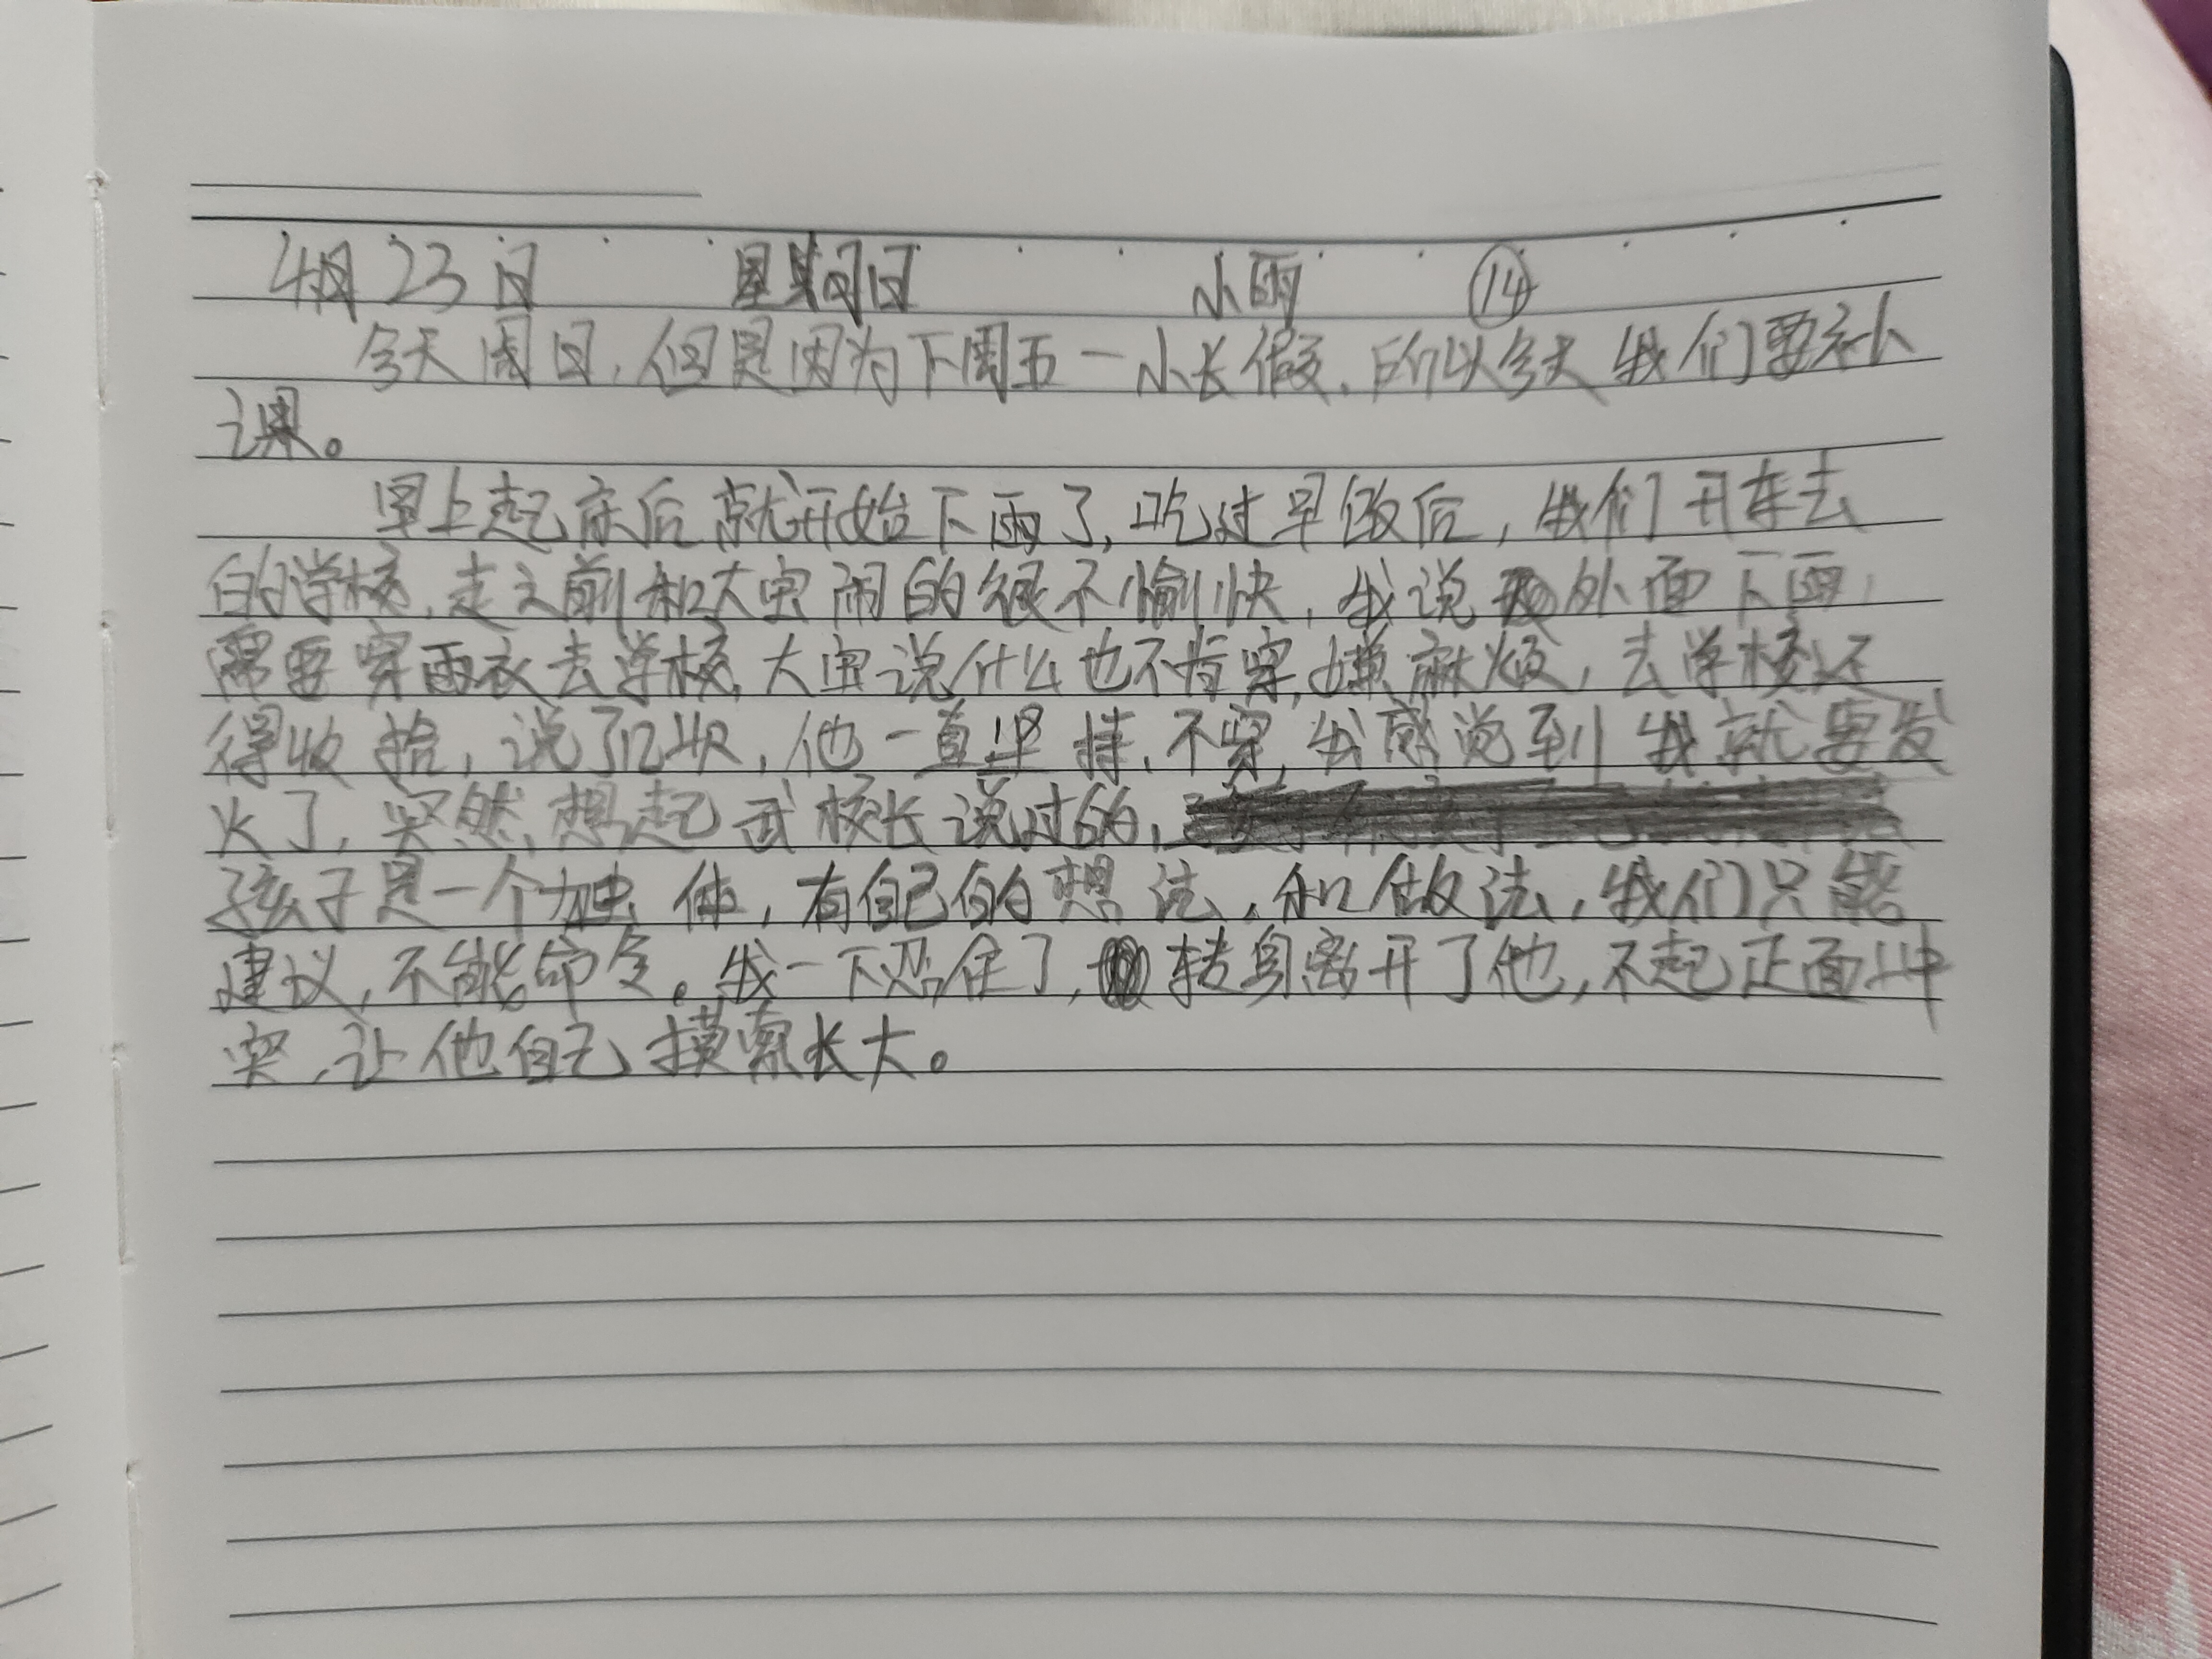 4月23日 星期日 小雨 ⑭
今天周日,但是因为下周五一小长假,所以今天我们要补
课。
早上起床后就开始下雨了,吃过早饭后,我们开车去
的学校,走之前和大宝闹的很不愉快,我说外面下雨,
需要穿雨衣去学校,大宝说什么也不肯穿,嫌麻烦,去学校还
得收拾,说了几次,他一直坚持,不穿,我感觉到我就要发
火了,突然,想起武校长说过的,
孩子是一个独体,有自己的想法,和做法,我们只能
建议,不能命令。我一下忍住了,转身离开了他,不起正面冲
突,让他自己摸索长大。